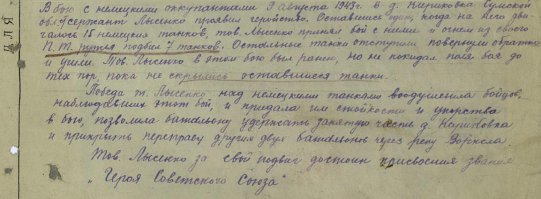 В бою с немецкими оккупантами 9 августа 1943г. в д. Кириковка Сумской
обл, сержант Лысенко проявил геройство. Оставшись один, когда на него дви-
галось 15 немецких танков, тов. Лысенко принял бой с ними и огнем из своего
П.Т. ружья подбил 7 танков. Остальные танки отступили повернули обратно
и ушли. Тов. Лысенко в этом бою был ранен, но не покидал поля боя до
тех пор, пока не скрылись оставшиеся танки.
Победа т. Лысенко над немецкими танками воодушевила бойцов,
наблюдавших этот бой, и придала им стойкости и упорства
в бою, позволила батальону удержать занятую часть д. Кириковка
и прикрыть переправу других двух батальонов через реку Ворскла.
Тов. Лысенко за свой подвиг достоин присвоения звания
"Героя Советского Союза"